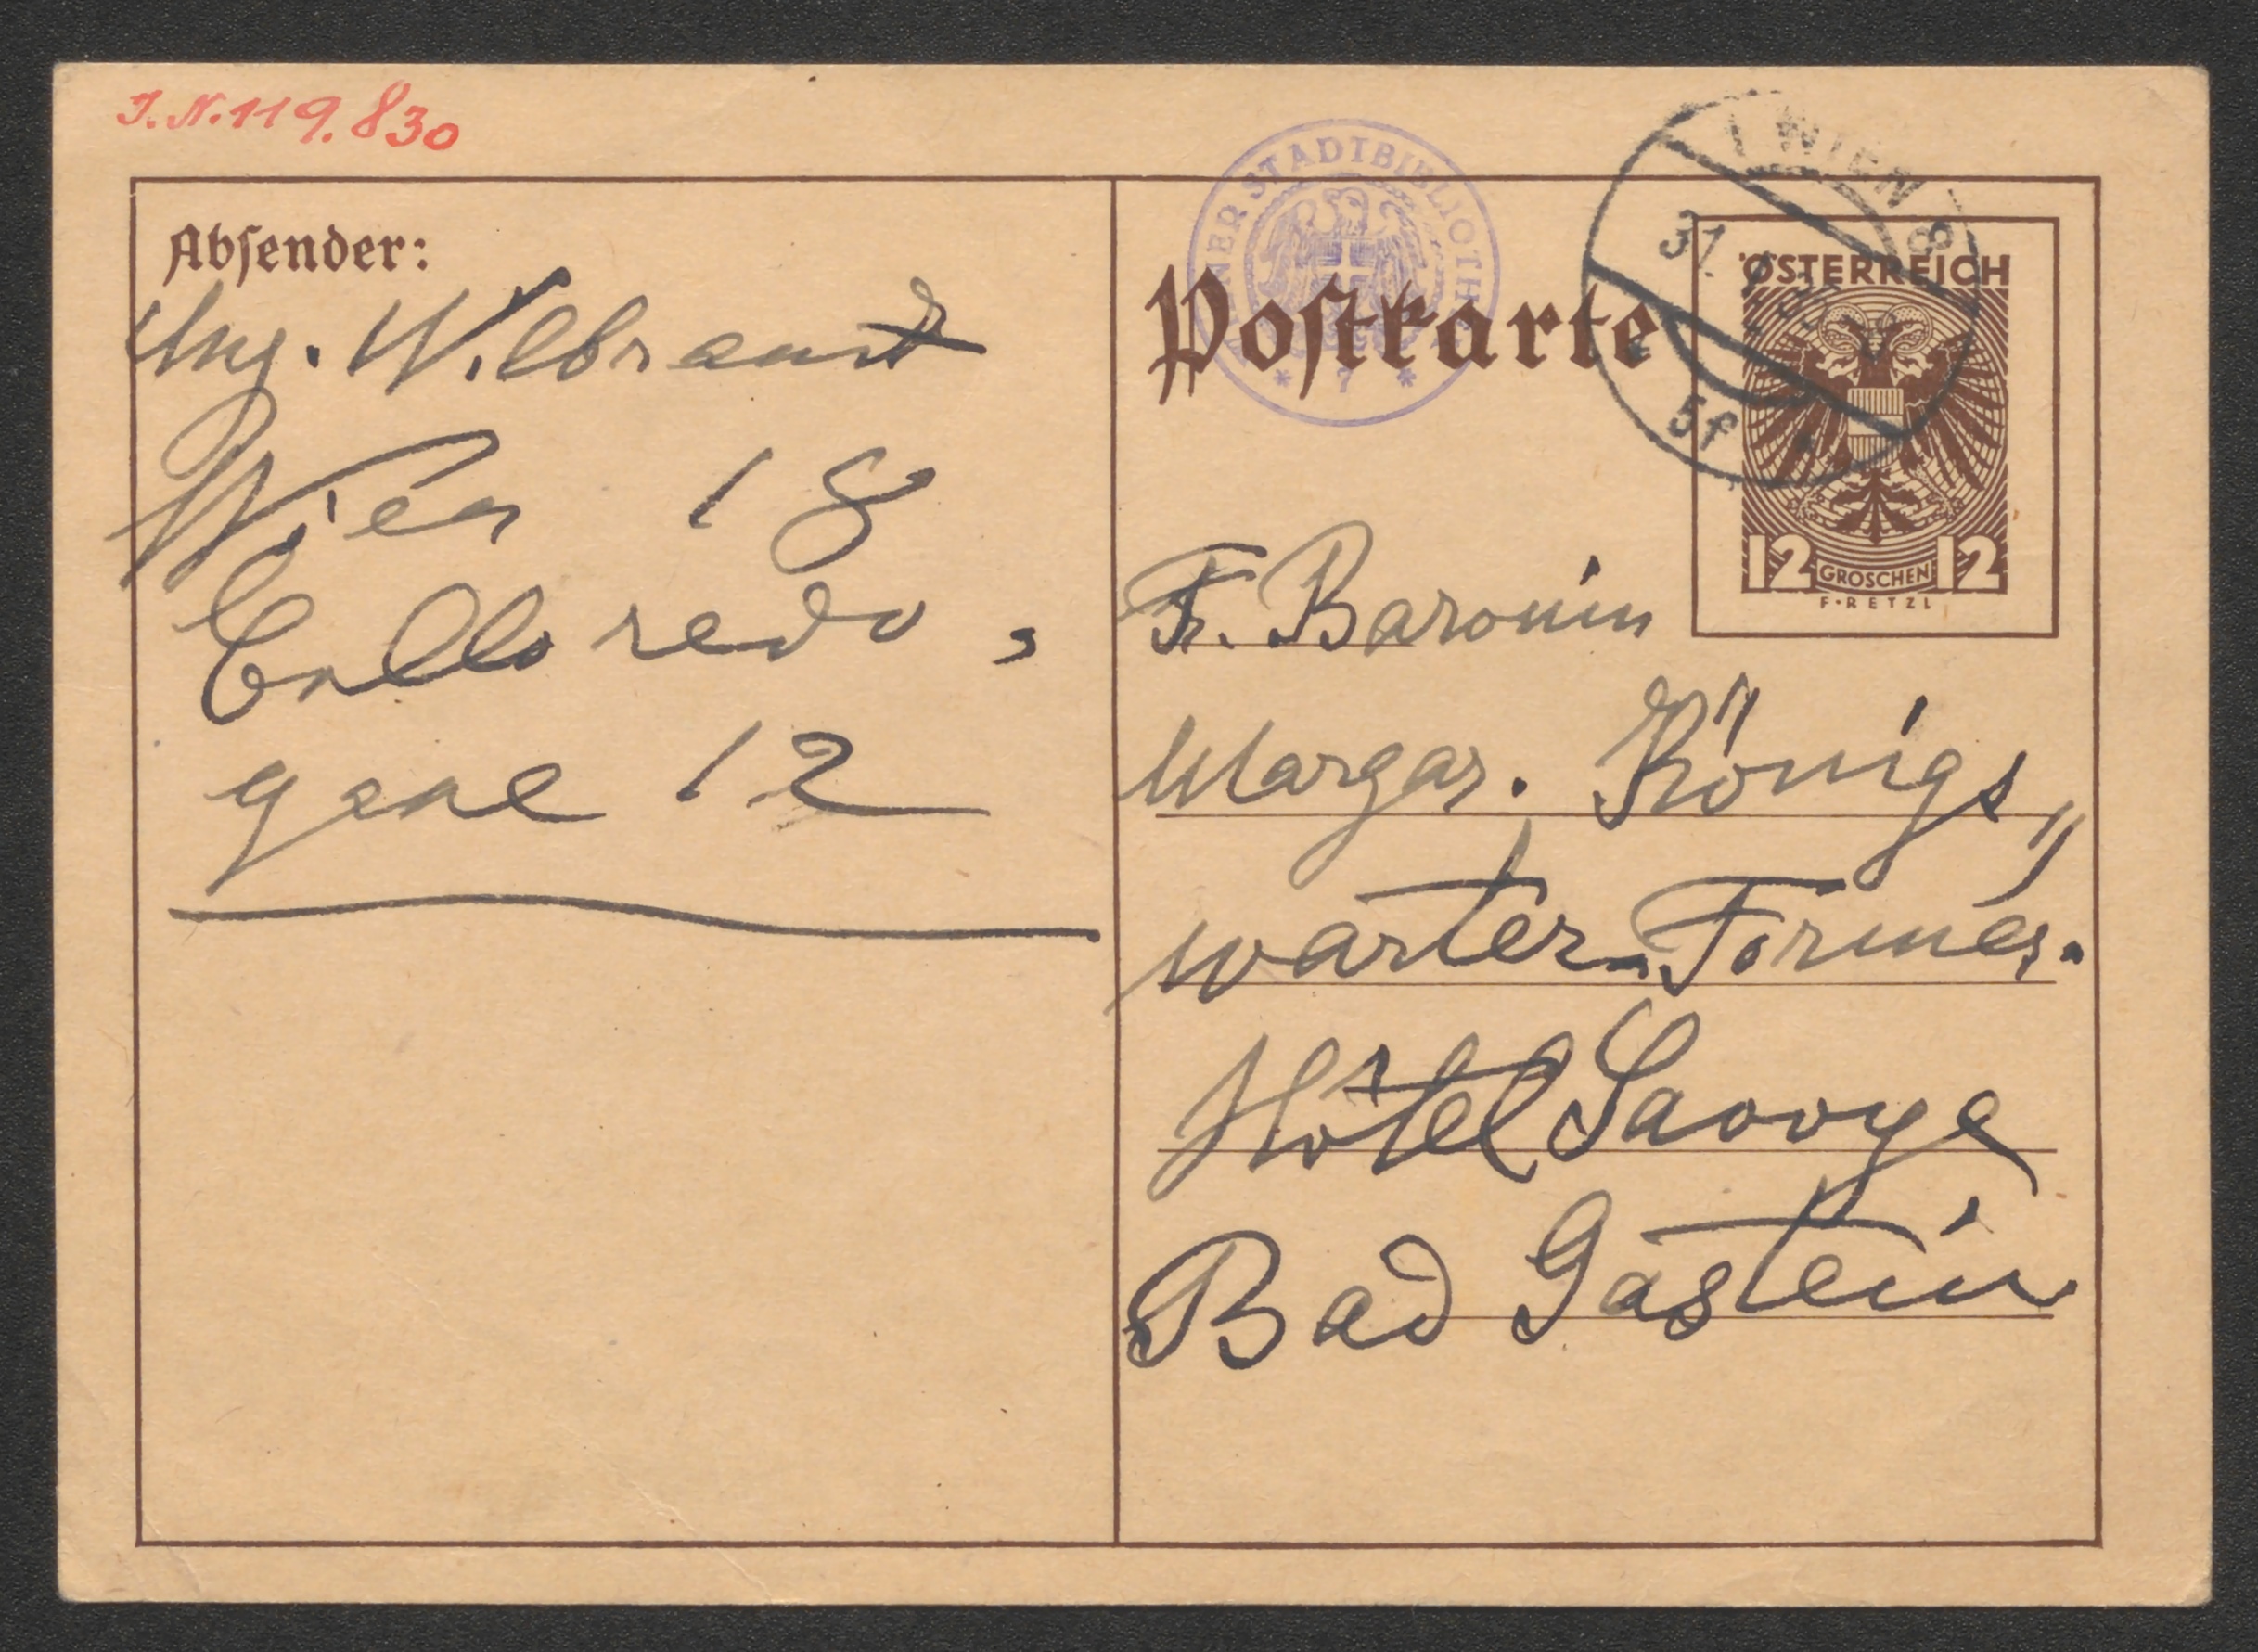 J.N. 119.830
Absender:
Aug. Wilbrandt
Wien 18
Colloredo-
gasse 12
WIENER STADTBIBLIOTHEK
* 7 *
Postkarte
WIEN
31.
5f
ÖSTERREICH
12 GROSCHEN 12
F·RETZL
Fr. Baronin
Margar. Königs„
warter-Formes.
Hôtel Savoye
Bad Gastein